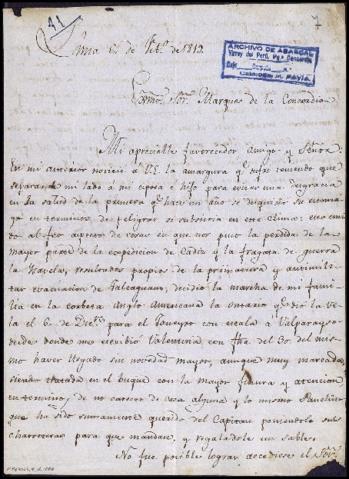 41
7
Lima 6 de Feb.º de 1819.
ARCHIVO DE ABASCAL
Virrey del Perú, Mqs. Concordia
Exmo. Sor. Marques de la Concordia
Mi apreciable favorecedor amigo y Señor.
En mi anterior noticié a V.E. la amargura q.e hube teniendo que
separar de mi lado á mi esposa é hijo para evitar una desgracia
en la salud de la primera q.e hace un año se disgustó su estomago
en terminos de peligrar si subsistia en este Clima: esto unido
al feo aspecto de cosas en que nos puso la perdida de la
mayor parte de la expedicion de Cadiz y la fragata de guerra
la Isavel, resultados propios de la primera y antimilitar
evacuacion de Talcaguano, decidio la marcha de mi familia
en la corbeta Anglo Americana la Ontario q.e dió la
vela el 6 de Dic.re para el Janeyro con escala á Valparayso
desde donde me escribió Valentina, con fha. del 30 del mismo
haver llegado sin novedad mayor, aunque muy mareados
siendo tratada en el buque con la mayor finura y atencion
en terminos de no carecer de cosa alguna y lo mismo
que ha sido sumamente querido del Capitan poniendole sus
charreteras para que mandase, y regalandole un sable.
No fue posible lograr accediese el Sor.